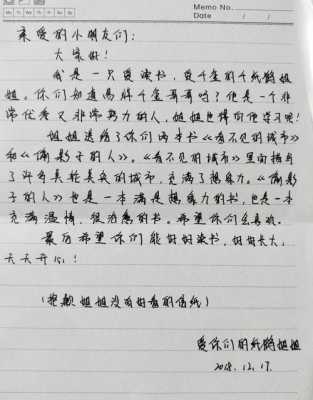 Memo No.
Date / /
Mo Tu We Th Fr Sa Su
亲爱的小朋友们:
大家好!
我是一只爱读书,爱千玺的千纸鹤姐
姐。你们知道易烊千玺哥哥吗?他是一个非
常优秀又非常努力的人,姐姐也得向他学习呢!
姐姐送给了你们两本书《看不见的城市》
和《偷影子的人》。《看不见的城市》里面描写
了许有具轮美奂的城市,充满了想象力。《偷影
子的人》也是一本满是想象力的书,也是一本
充满温情,很治愈的书。希望你们会喜欢。
最后希望你们能好好读书,好好长大,
天天开心!
(抱歉姐姐没有好看的信纸)
爱你们的纸鹤姐姐
2018.12.17.